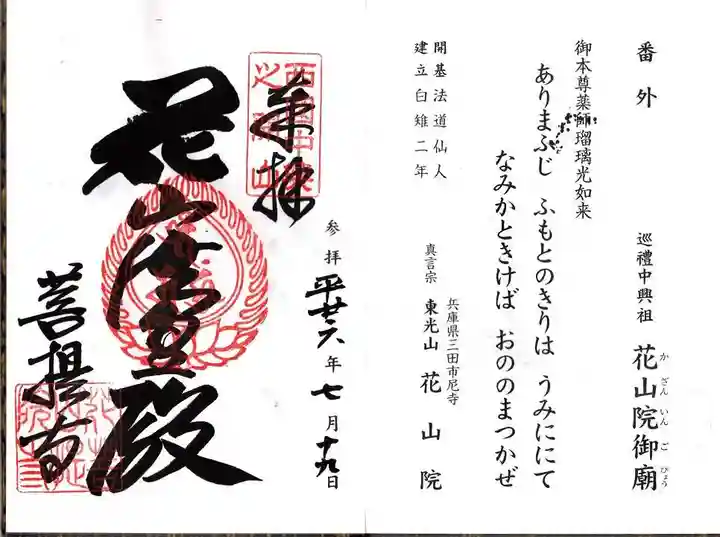 番外 巡禮中興祖 花山院御廟
かざんいんごびょう
御本尊薬師瑠璃光如来
ありまふじ ふもとのきりは うみににて
なみかときけば おののまつかぜ
開基法道仙人
建立白雉二年
兵庫県三田市尼寺
真言宗 東光山 花山院
参拝 平廿六年七月十九日
奉拝
花山法皇殿
菩提寺